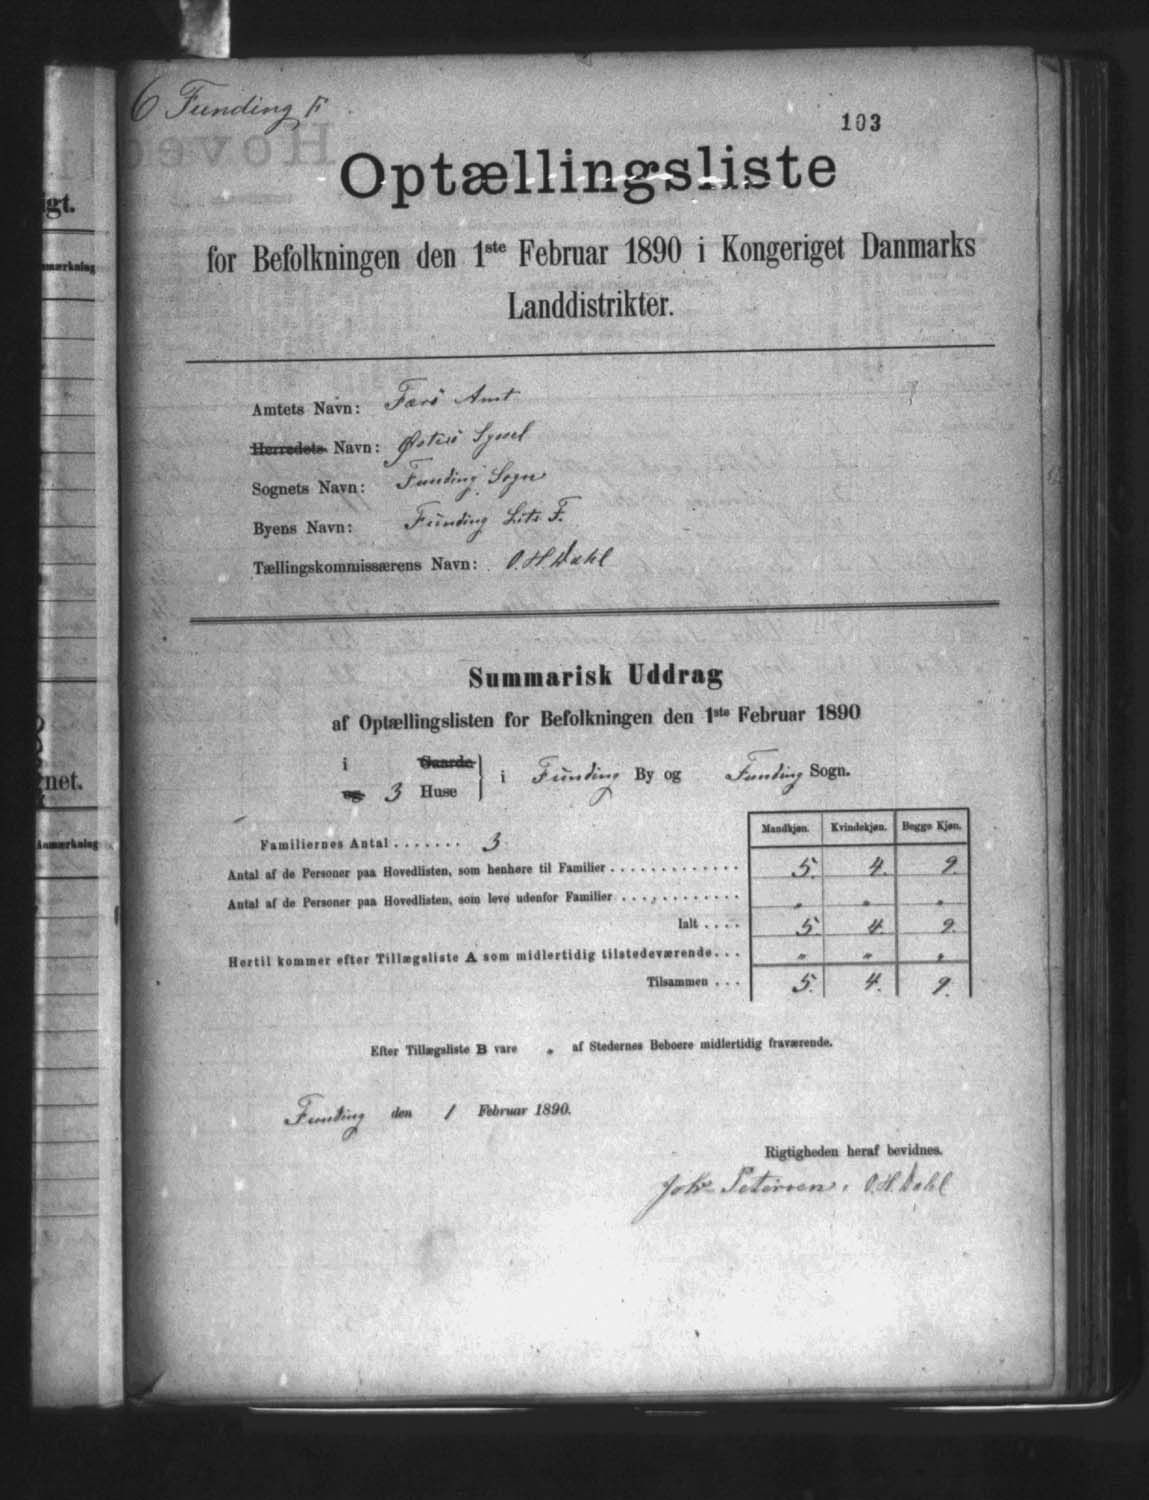 6 Funding F
103
Optællingsliste
for Befolkningen den 1ste Februar 1890 i Kongeriget Danmarks
Landdistrikter.
Amtets Navn: Færö Amt
Herredets Navn: Østerö Syssel
Sognets Navn: Funding Sogn
Byens Navn: Funding Litr F.
Tællingskommissærens Navn: O. H Dahl
Summarisk Uddrag
af Optællingslisten for Befolkningen den 1ste Februar 1890
i Gaarde
og 3 Huse i Funding By og Funding Sogn.
Mandkjøn. Kvindekjøn. Begge Kjøn.
Familiernes Antal ....... 3
Antal af de Personer paa Hovedlisten, som henhøre til Familier ............. 5. 4. 9.
Antal af de Personer paa Hovedlisten, som leve udenfor Familier ............ " " "
Ialt .... 5 4. 9.
Hertil kommer efter Tillægsliste A som midlertidig tilstedeværende... " " "
Tilsammen ... 5. 4. 9.
Efter Tillægsliste B vare " af Stedernes Beboere midlertidig fraværende.
Funding den 1 Februar 1890.
Rigtigheden heraf bevidnes.
Petersen. O. H. Dahl
igt.
mærkning
net.
Anmærkning